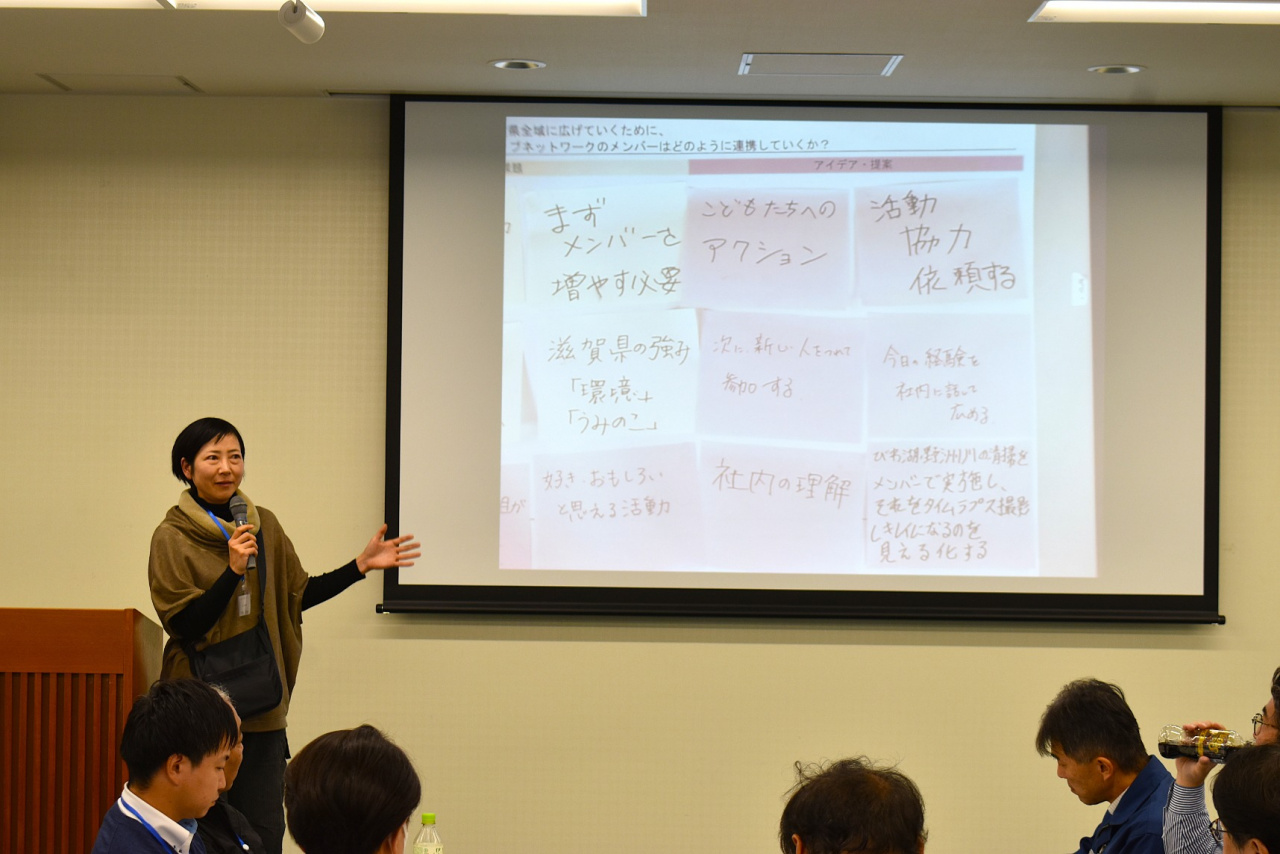 県全域に広げていくために、
ブネットワークのメンバーはどのように連携していくか？
課題
アイデア・提案
まず
メンバーを
増やす必要
こどもたちへの
アクション
活動
協力
依頼する
滋賀県の強み
「環境」+
「うみのこ」
次に、新しい人をつれて
参加する
今日の経験を
社内に話して
広める
好き、おもしろい
と思える活動
社内の理解
びわ湖、野洲川の清掃を
メンバーで実施し、
それをタイムラプス撮影
しキレイになるのを
見える化する